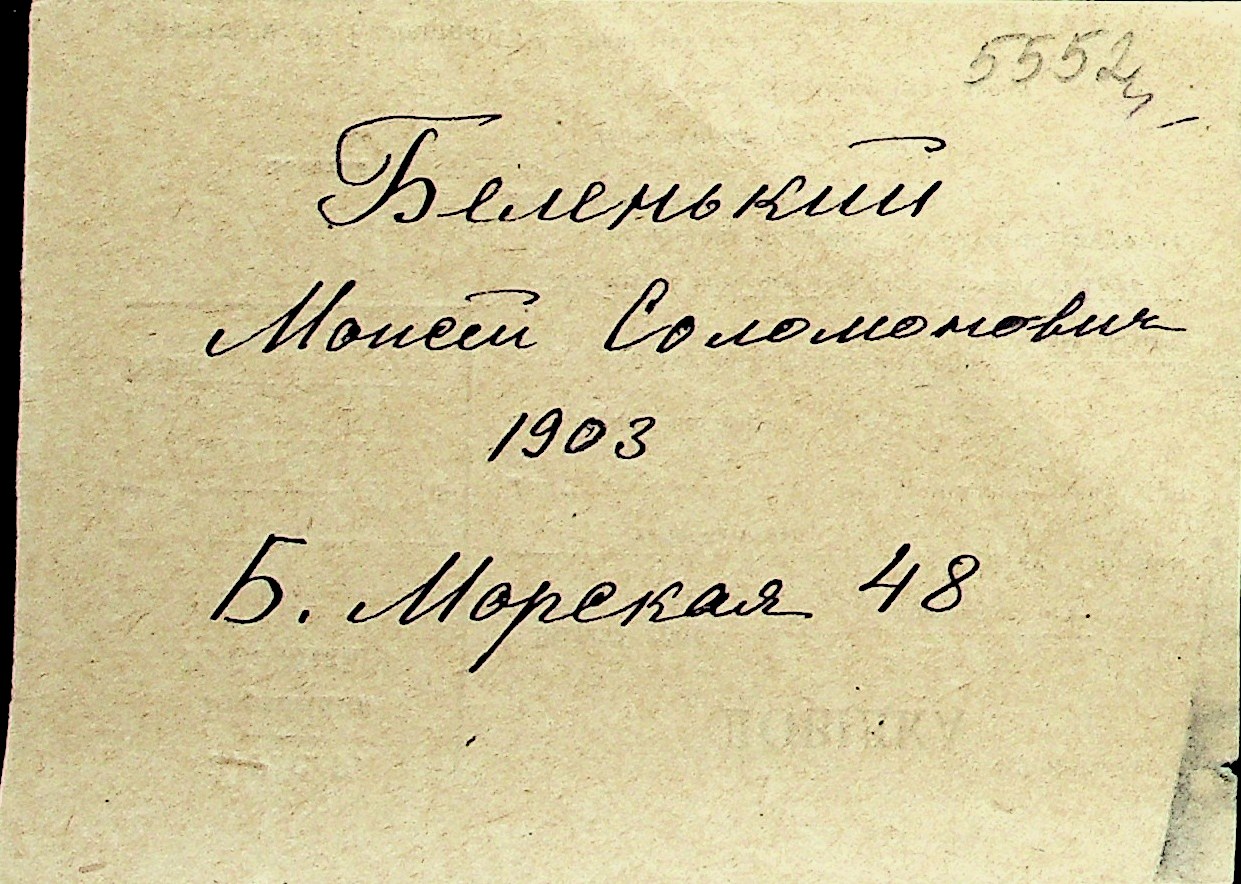 5552
Беленький
Моисей Соломонович
1903
Б. Морская 48